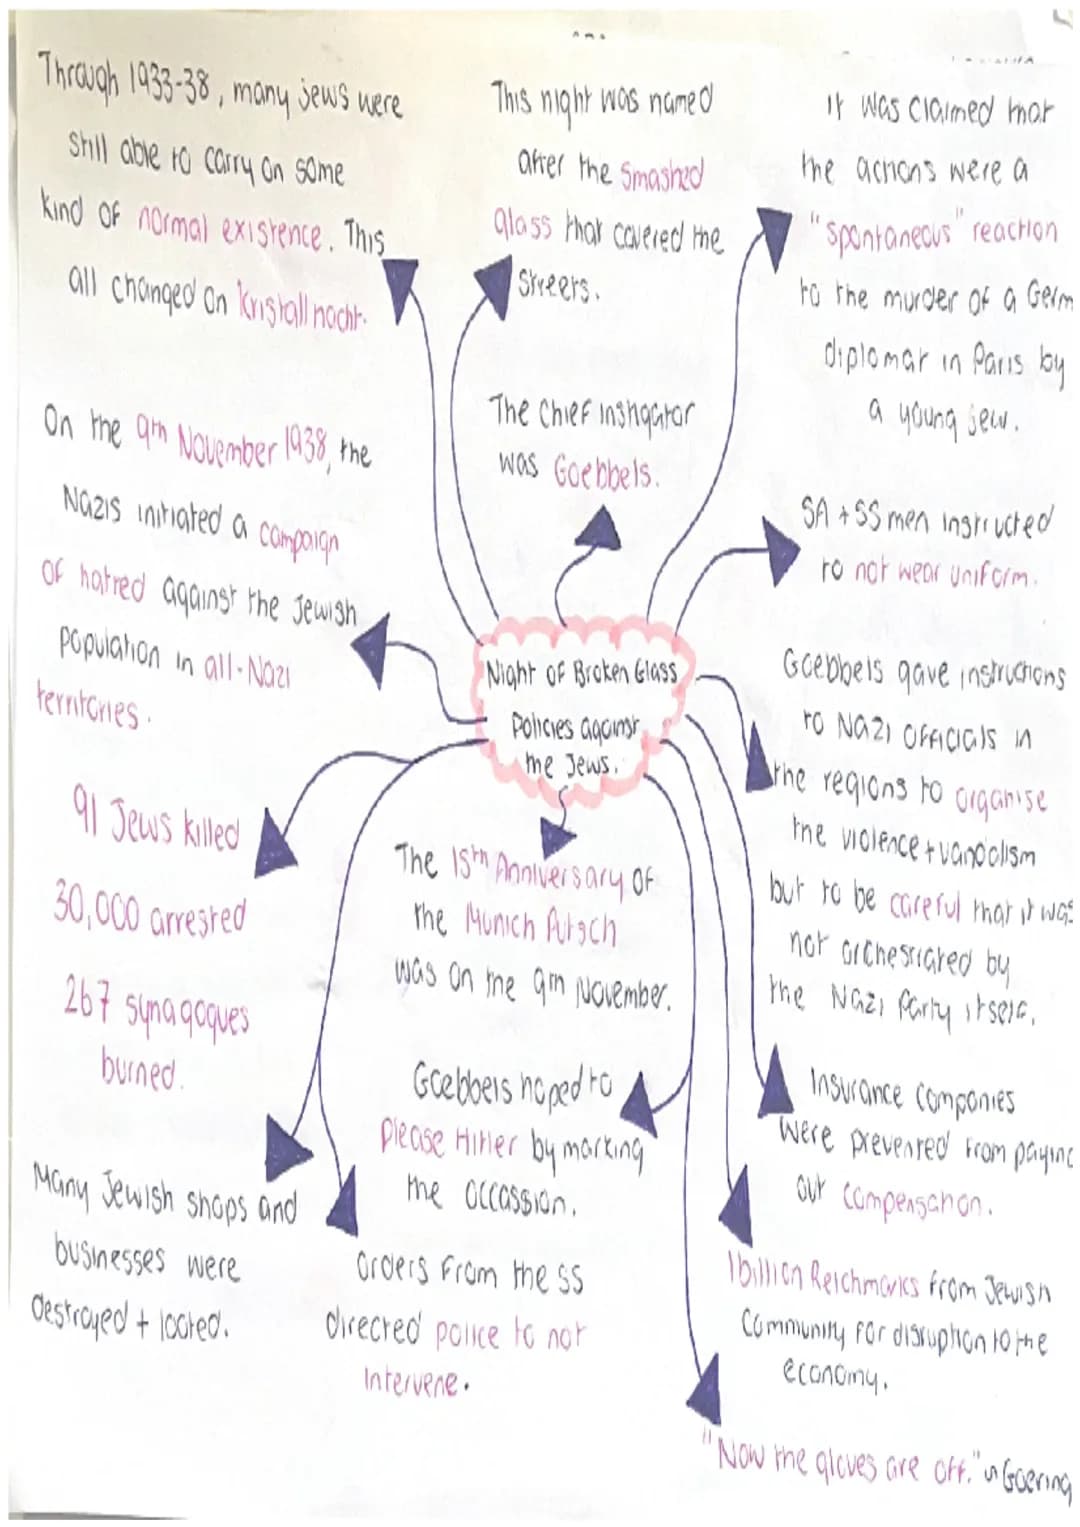 Through 1933-38, many jews were
still able to carry on some
kind of normal existence. This
all changed on Kristallnacht.
This night was named
after the smashed
glass that covered the
streets.
it was claimed that
the actions were a
"spontaneous" reaction
to the murder of a Germ
diplomat in Paris by
a young jew.
The chief instigator
was Goebbels.
On the 9th November 1938, the
Nazis initiated a campaign
of hatred against the Jewish
population in all-Nazi
territories.
SA + SS men instructed
to not wear uniform.
Night of Broken Glass
Policies against
the Jews.
Goebbels gave instructions
to Nazi officials in
the regions to organise
the violence + vandalism
but to be careful that it was
not orchestrated by
the Nazi Party itself.
91 Jews killed
30,000 arrested
267 synagogues
burned.
The 15th Anniversary of
the Munich Putsch
was on the 9th November.
Goebbels hoped to
please Hitler by marking
the occassion.
Insurance companies
were prevented from paying
out compensation.
Many Jewish shops and
businesses were
destroyed + looted.
Orders from the SS
directed police to not
intervene.
1 billion Reichmarks from Jewish
community for disruption to the
economy.
"Now the gloves are off." ~ Goering